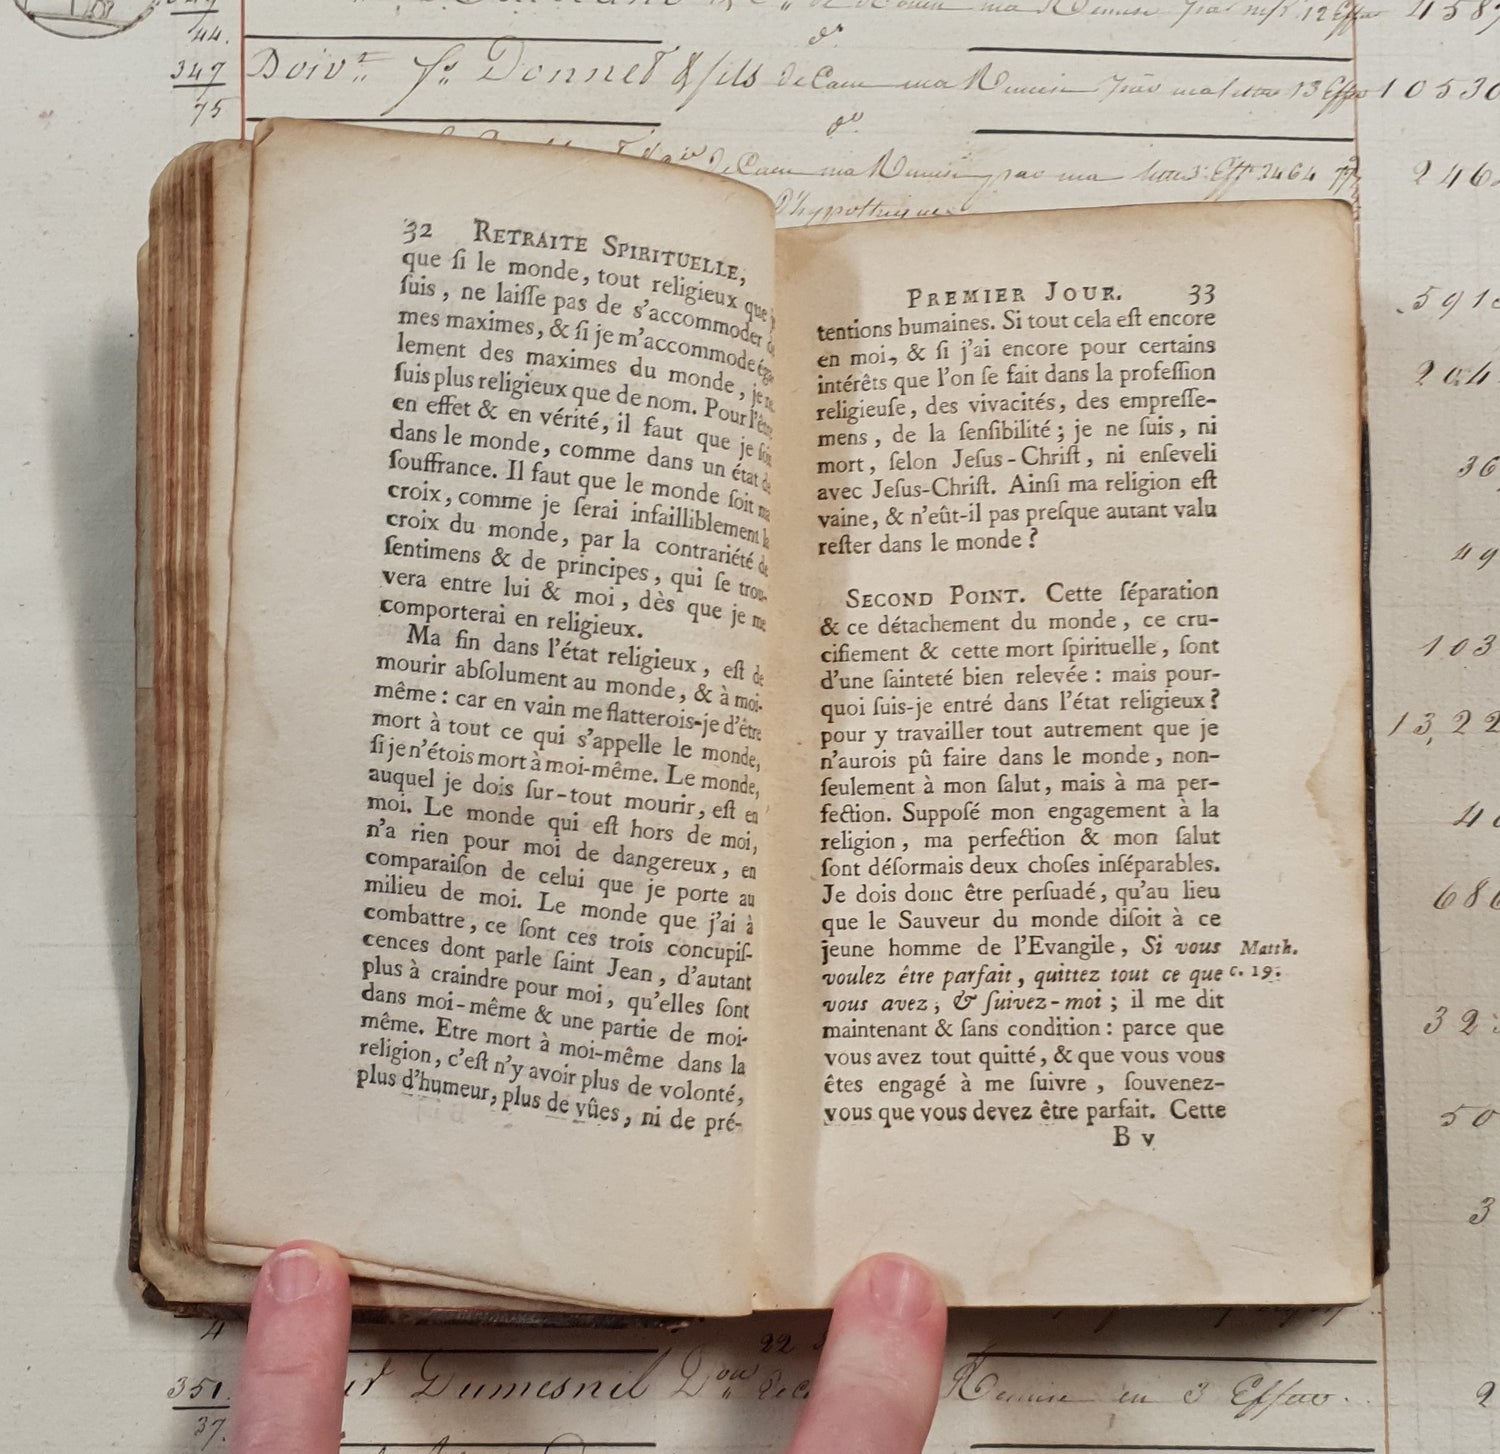 44.
347
75
Doiv.t f.s Donnet & fils de Caen ma Remise par ma lettre 13 Effets 10530
d.o
de Caen ma Remise par ma lettre 3 Eff. 2464 246
d'hypothèque
32 RETRAITE SPIRITUELLE,
que ſi le monde, tout religieux que
ſuis, ne laiſſe pas de s'accommoder
mes maximes, & ſi je m'accommode
lement des maximes du monde, je
ſuis plus religieux que de nom. Pour
en effet & en vérité, il faut que je
dans le monde, comme dans un état
ſouffrance. Il faut que le monde ſoit
croix, comme je ſerai infailliblement
croix du monde, par la contrariété
ſentimens & de principes, qui ſe trou-
vera entre lui & moi, dès que je me
comporterai en religieux.
Ma fin dans l'état religieux, eſt de
mourir abſolument au monde, & à moi-
même : car en vain me flatterois-je d'être
mort à tout ce qui s'appelle le monde,
ſi je n'étois mort à moi-même. Le monde,
auquel je dois ſur-tout mourir, eſt en
moi. Le monde qui eſt hors de moi,
n'a rien pour moi de dangereux, en
comparaiſon de celui que je porte au
milieu de moi. Le monde que j'ai à
combattre, ce ſont ces trois concupiſ-
cences dont parle ſaint Jean, d'autant
plus à craindre pour moi, qu'elles ſont
dans moi-même & une partie de moi-
même. Etre mort à moi-même dans la
religion, c'eſt n'y avoir plus de volonté,
plus d'humeur, plus de vûes, ni de pré-
PREMIER JOUR. 33
tentions humaines. Si tout cela eſt encore
en moi, & ſi j'ai encore pour certains
intérêts que l'on ſe fait dans la profeſſion
religieuſe, des vivacités, des empreſſe-
mens, de la ſenſibilité ; je ne ſuis, ni
mort, ſelon Jeſus-Chriſt, ni enſeveli
avec Jeſus-Chriſt. Ainſi ma religion eſt
vaine, & n'eût-il pas preſque autant valu
reſter dans le monde ?
SECOND POINT. Cette ſéparation
& ce détachement du monde, ce cru-
cifiement & cette mort ſpirituelle, ſont
d'une ſainteté bien relevée : mais pour-
quoi ſuis-je entré dans l'état religieux ?
pour y travailler tout autrement que je
n'aurois pû faire dans le monde, non-
ſeulement à mon ſalut, mais à ma per-
fection. Suppoſé mon engagement à la
religion, ma perfection & mon ſalut
ſont déſormais deux choſes inſéparables.
Je dois donc être perſuadé, qu'au lieu
que le Sauveur du monde diſoit à ce
jeune homme de l'Evangile, Si vous Matth.
voulez être parfait, quittez tout ce que c. 19.
vous avez, & ſuivez-moi ; il me dit
maintenant & ſans condition : parce que
vous avez tout quitté, & que vous vous
êtes engagé à me ſuivre, ſouvenez-
vous que vous devez être parfait. Cette
B v
351. Dumesnil Remise en 3 Effets
37.